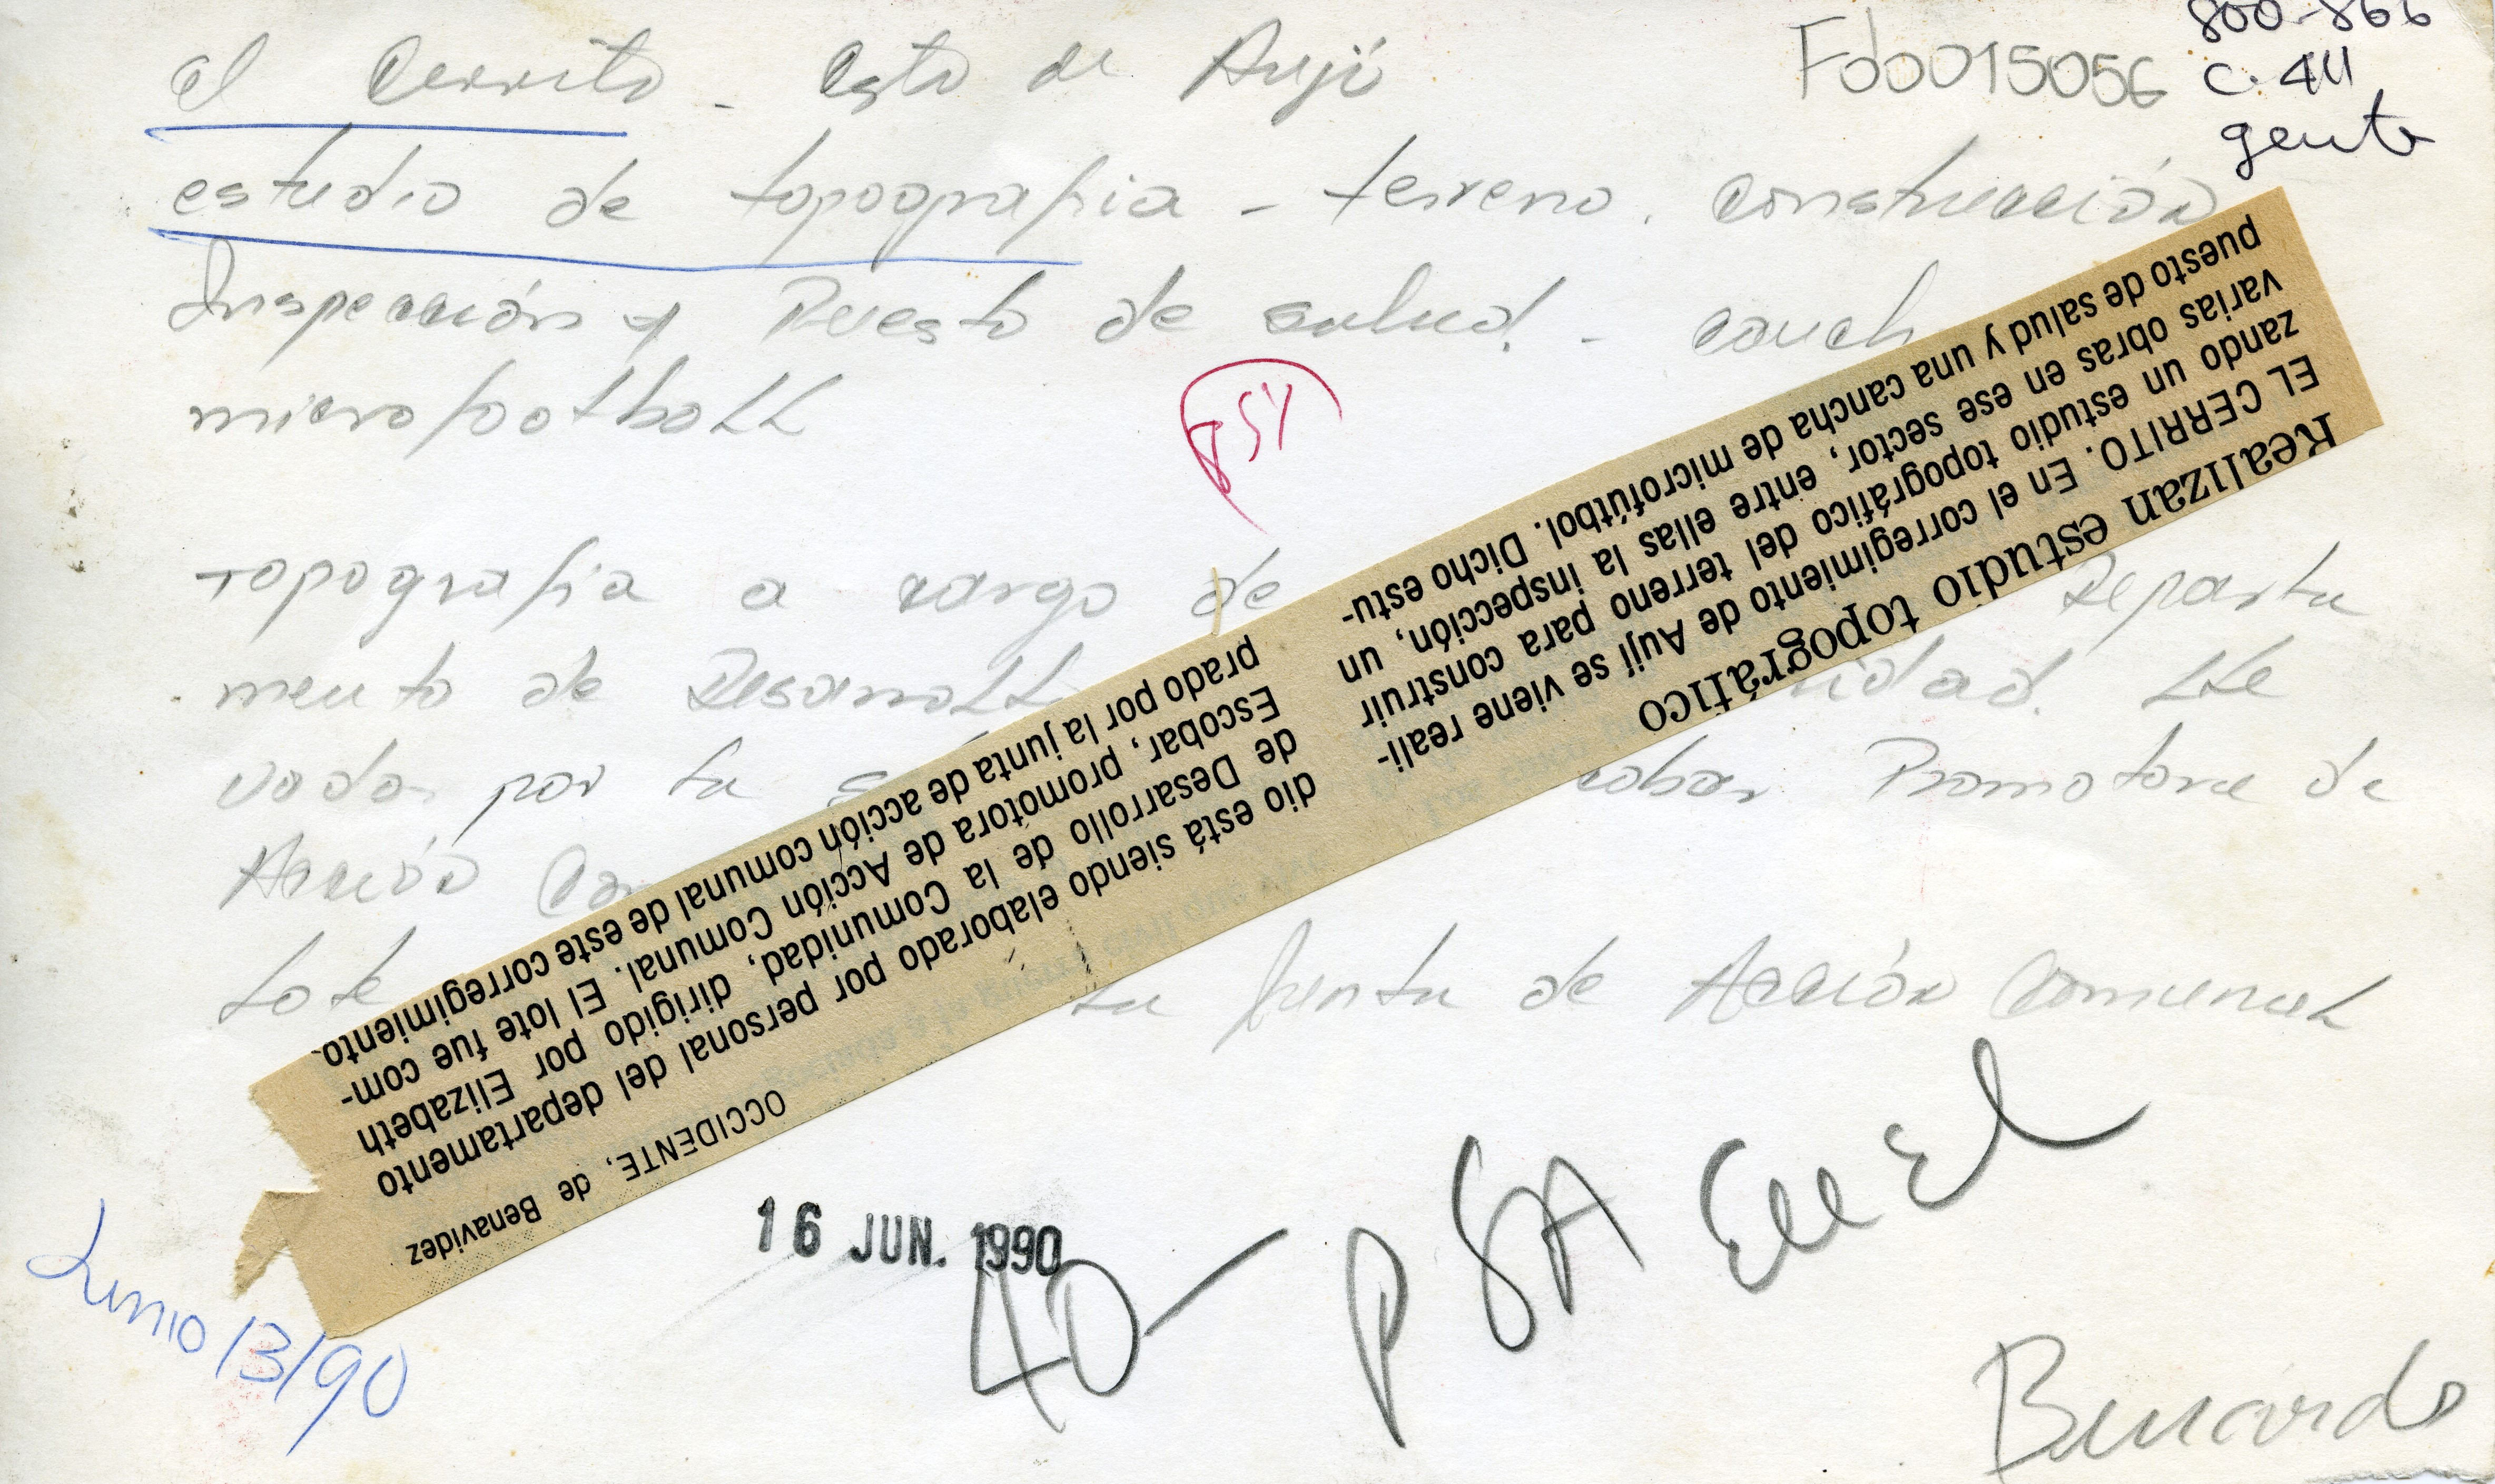 800-866
Fdo015056
C. 411
gente
el Cerrito - Csto de Aují
estudio de topografia - terreno. Construcción
Inspección y Puesto de salud. - canch
microfootboll
topografia a cargo de Departa
mento de Desarroll nidad. LLe
vado por la cobar Promotora de
Acción Com
Lote la Junta de Acción Comunal
Realizan estudio topográfico
EL CERRITO. En el corregimiento de Aují se viene reali-
zando un estudio topográfico del terreno para construir
varias obras en ese sector, entre ellas la inspección, un
puesto de salud y una cancha de microfútbol. Dicho estu-
dio está siendo elaborado por personal del departamento
de Desarrollo de la Comunidad, dirigido por Elizabeth
Escobar, promotora de Acción Comunal. El lote fue com-
prado por la junta de acción comunal de este corregimiento.
OCCIDENTE, de Benavidez
16 JUN. 1990
Junio 13/90
40-